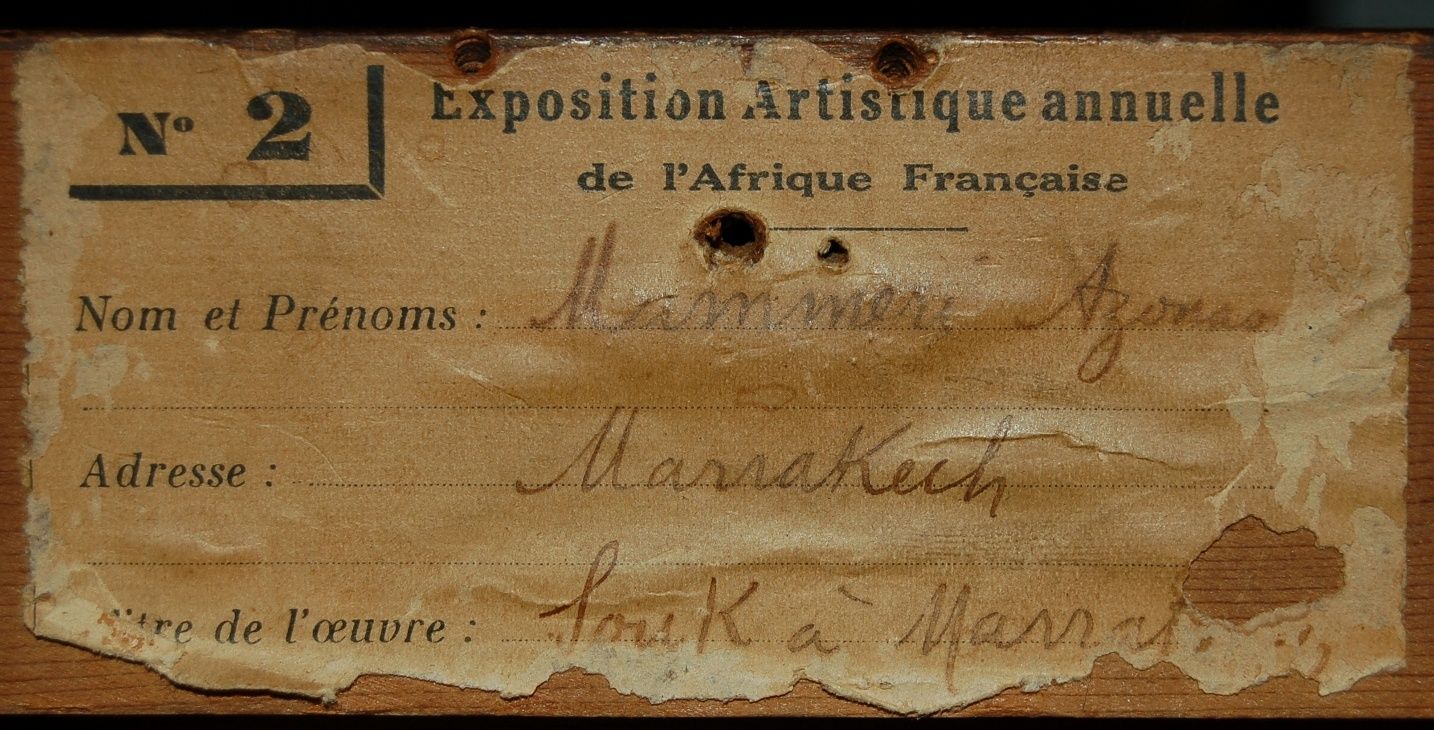 Nº 2
Exposition Artistique annuelle
de l'Afrique Française
Nom et Prénoms : Mammeri Azouao
Adresse : Marrakech
Titre de l'œuvre : Souk à